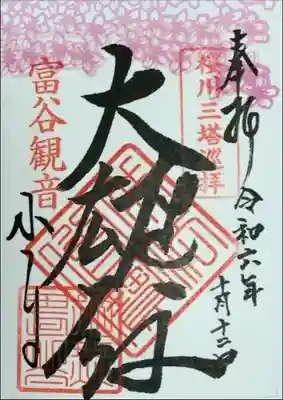 奉拝
令和六年
十月十二日
桜川三塔巡拝
大雄殿
富谷観音
小山寺